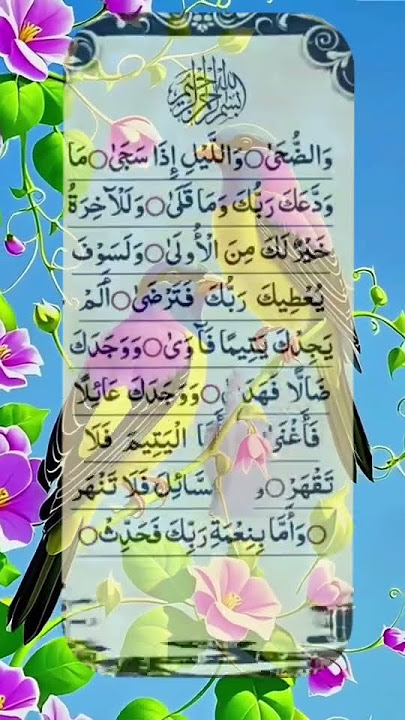 بسم الله الرحمن الرحيم
وَالضُّحَىٰ ○ وَاللَّيْلِ إِذَا سَجَىٰ ○ مَا
وَدَّعَكَ رَبُّكَ وَمَا قَلَىٰ ○ وَلَلْآخِرَةُ
خَيْرٌ لَكَ مِنَ الْأُولَىٰ ○ وَلَسَوْفَ
يُعْطِيكَ رَبُّكَ فَتَرْضَىٰ ○ أَلَمْ
يَجِدْكَ يَتِيمًا فَآوَىٰ ○ وَوَجَدَكَ
ضَالًّا فَهَدَىٰ ○ وَوَجَدَكَ عَائِلًا
فَأَغْنَىٰ أَمَّا الْيَتِيمَ فَلَا
تَقْهَرْ ○ و سَّائِلَ فَلَا تَنْهَرْ
○ وَأَمَّا بِنِعْمَةِ رَبِّكَ فَحَدِّثْ ○